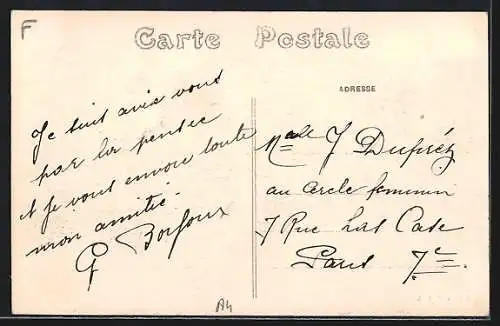 F
Carte Postale
ADRESSE
Je suis avec vous
par la pensée
et je vous envoie toute
mon amitié.
G
Melle J Dupréz
au Cercle feminin
7 Rue Las Case
Paris 7e.
A4